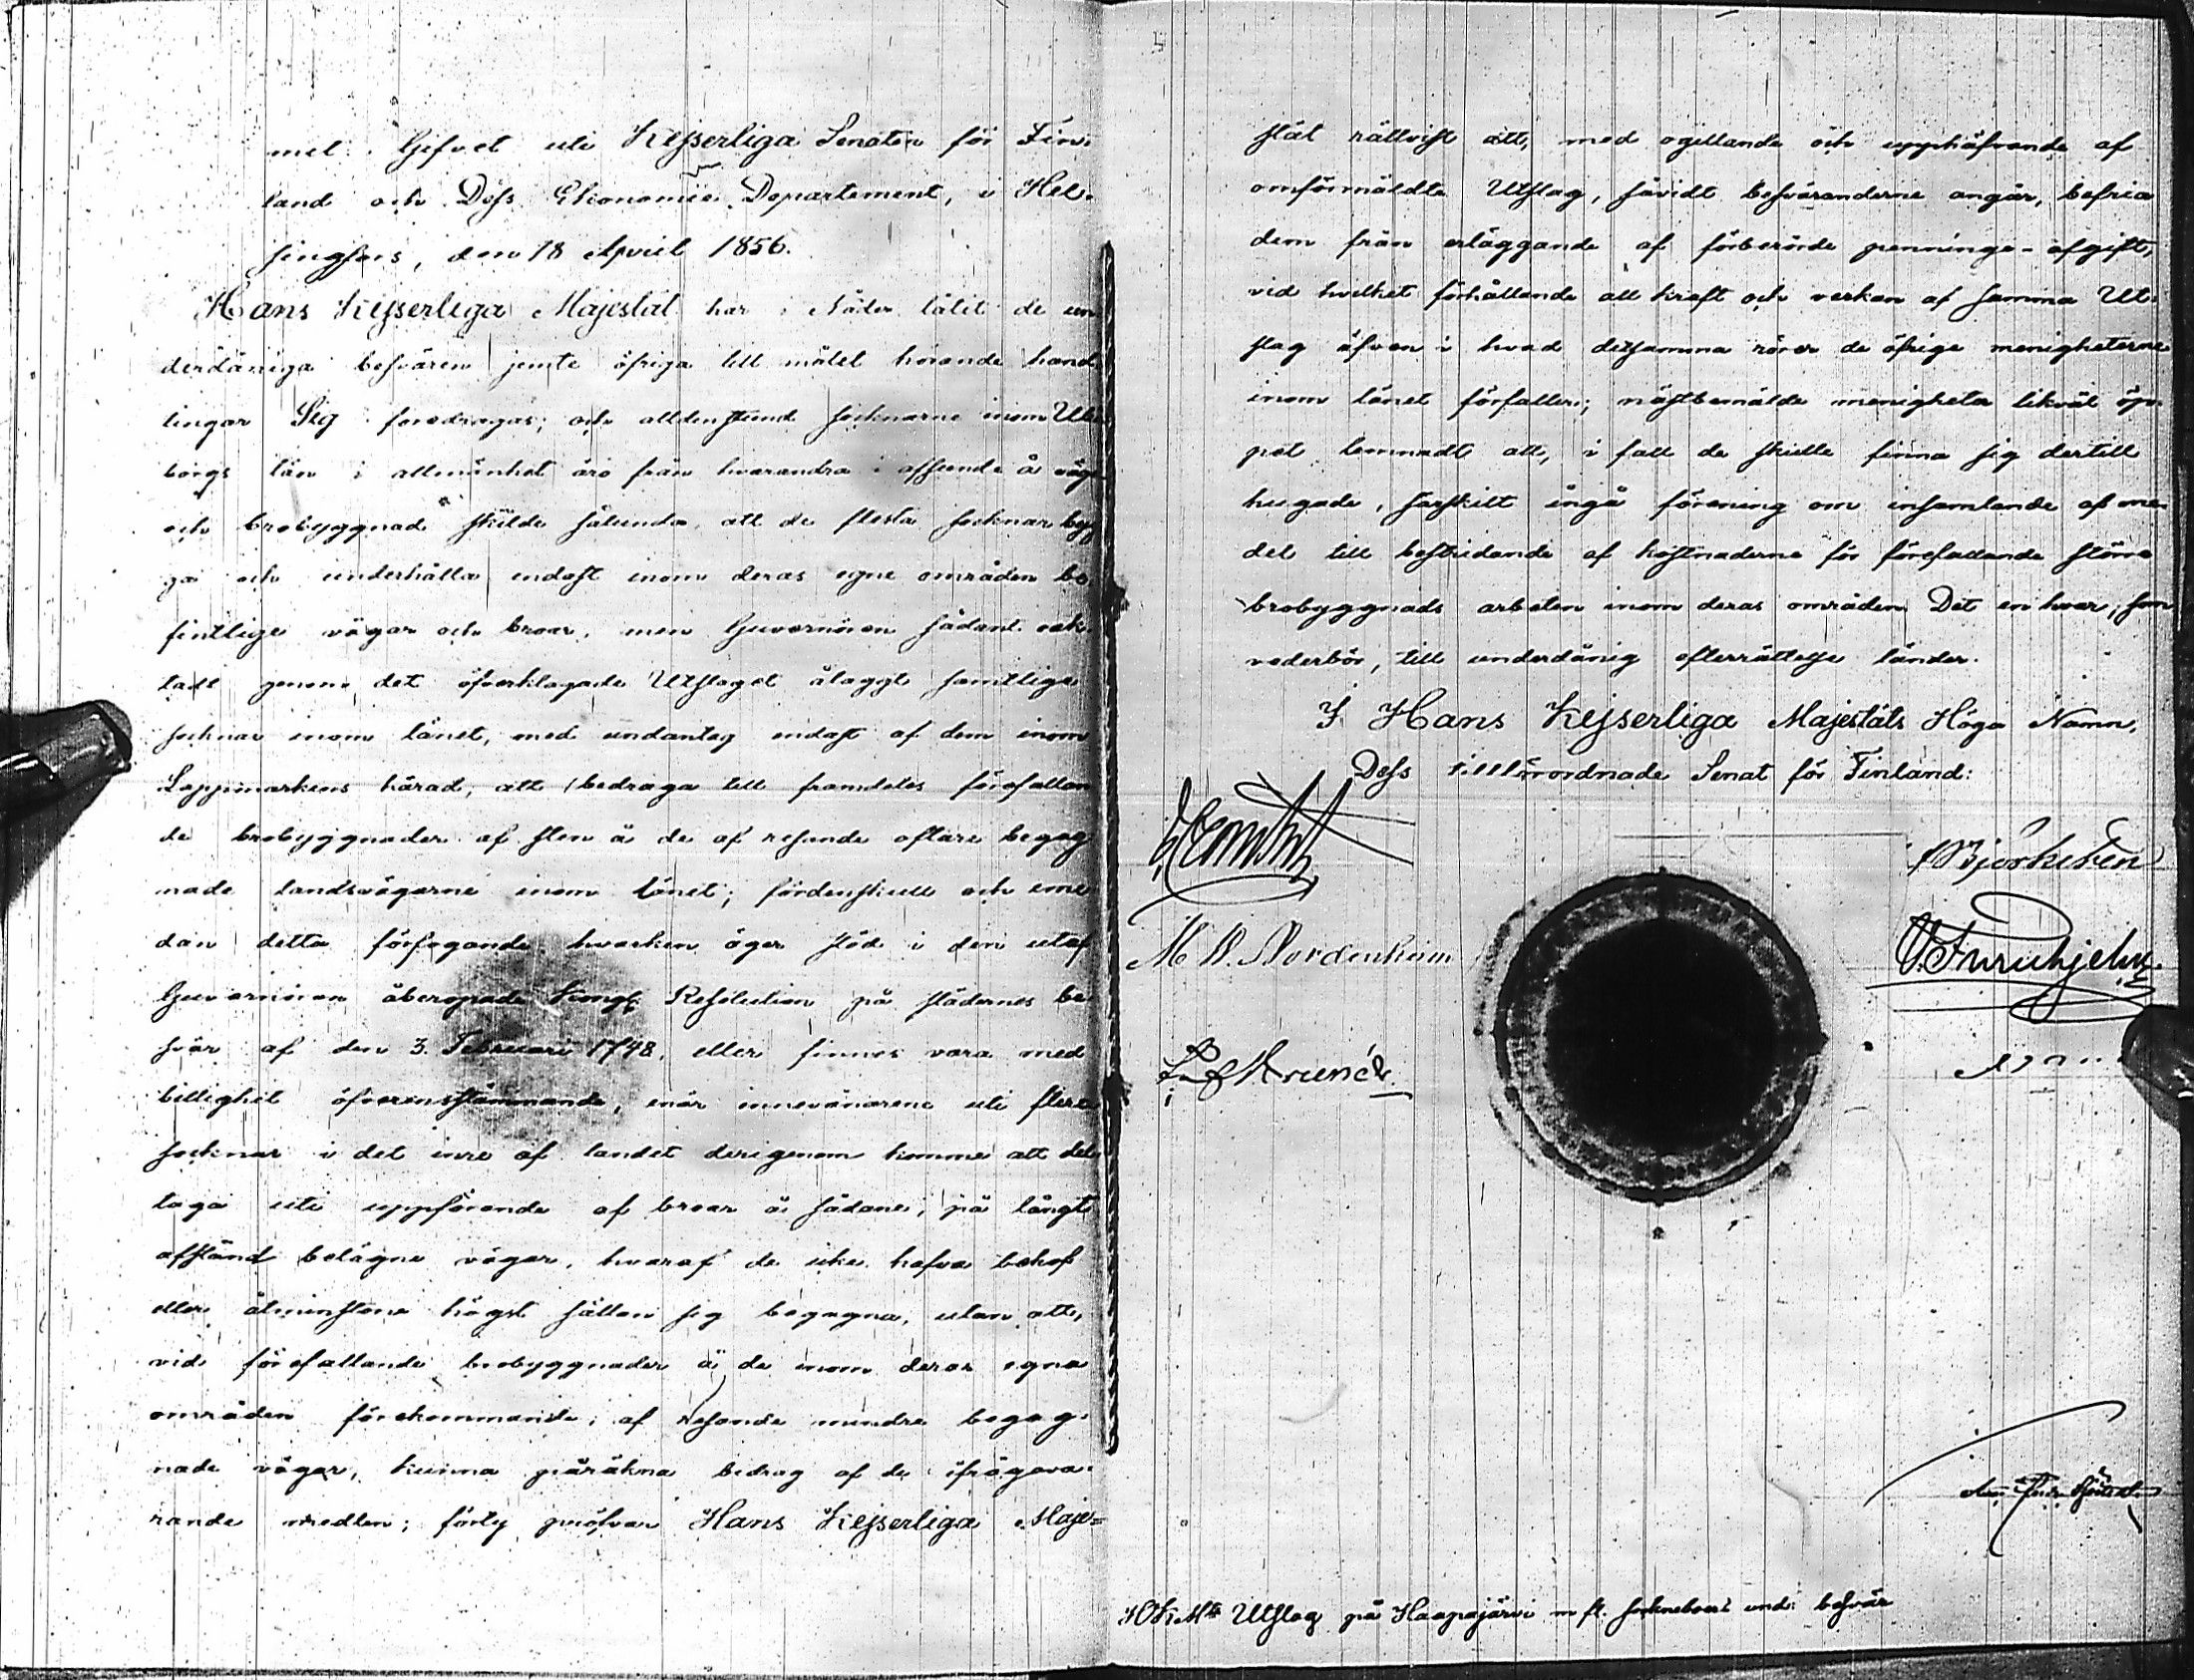 mel. Gifvet uti Kejserliga Senaten för Fin-
land och Dess Ekonomie Departement, i Hel-
singfors, den 18 April 1856.
Hans Kejserliga Majestät har i Nåder låtit de un
derdåniga besvären jemte öfriga till målet hörande hand
lingar Sig föredragas; och alldenstund socknarne inom Uleå
borgs län i allmänhet äro från hvarandra i afseende å väge
och brobyggnad skilde sålunda, att de flesta socknar byg
ga och underhålla endast inom deras egne områden be
fintlige vägar och broar, men Guvernören sådant oak
tadt genom det öfverklagade Utslaget ålaggt samtlige
socknar inom länet, med undantag endast af dem inom
Lappmarkens härad, att bedraga till framdeles förefallan
de brobyggnader af sten å de af resande oftare begag
nade landsvägarne inom länet; fördenskull och eme
dan detta förfogande hvarken äger stöd i den utaf
Guvernören åberopade Kongl. Resolution på städernes be
svär af den 3. Februari 1748, eller finnes vara med
billighet öfverensstämmande, enär innevånarene uti flere
socknar i det inre af landet derigenom komme att del
taga uti uppförande af broar å sådane, på långt
afstånd belägne vägar, hvaraf de icke hafva behof
eller åtminstone högst sällan sig begagna, utan att,
vid förefallande brobyggnader å de inom deras egna
områden förekommande, af resande mindre begag-
nade vägar, kunna påräkna bidrag af de ifrågava-
rande medlen; förty pröfvar Hans Kejserliga Maje=
stät rättvist att, med ogillande och upphäfvande af
omförmäldte Utslag, såvidt besväranderne angår, befria
dem från erläggande af förberörde penninge-afgift,
vid hvilket förhållande all kraft och verkan af samma Ut-
slag äfven i hvad detsamma rörer de öfrige menigheterne
inom länet förfaller; nästbemälde menigheter likväl öp-
pet lemnadt att, i fall de skulle finna sig dertill
hugade, särskilt ingå förening om insamlande af me-
del till bestridande af kostnaderne för förefallande större
brobyggnads arbeten inom deras områden Det en hvar, som
vederbör, till underdånig efterrättelse länder.
I Hans Kejserliga Majestäts Höga Namn,
Dess tillförordnade Senat för Finland:
Björkstén
M. W. Nordenheim
Furuhjelm
HKMts Utslag på Haapajärvi m fl. socknebors und: besvär